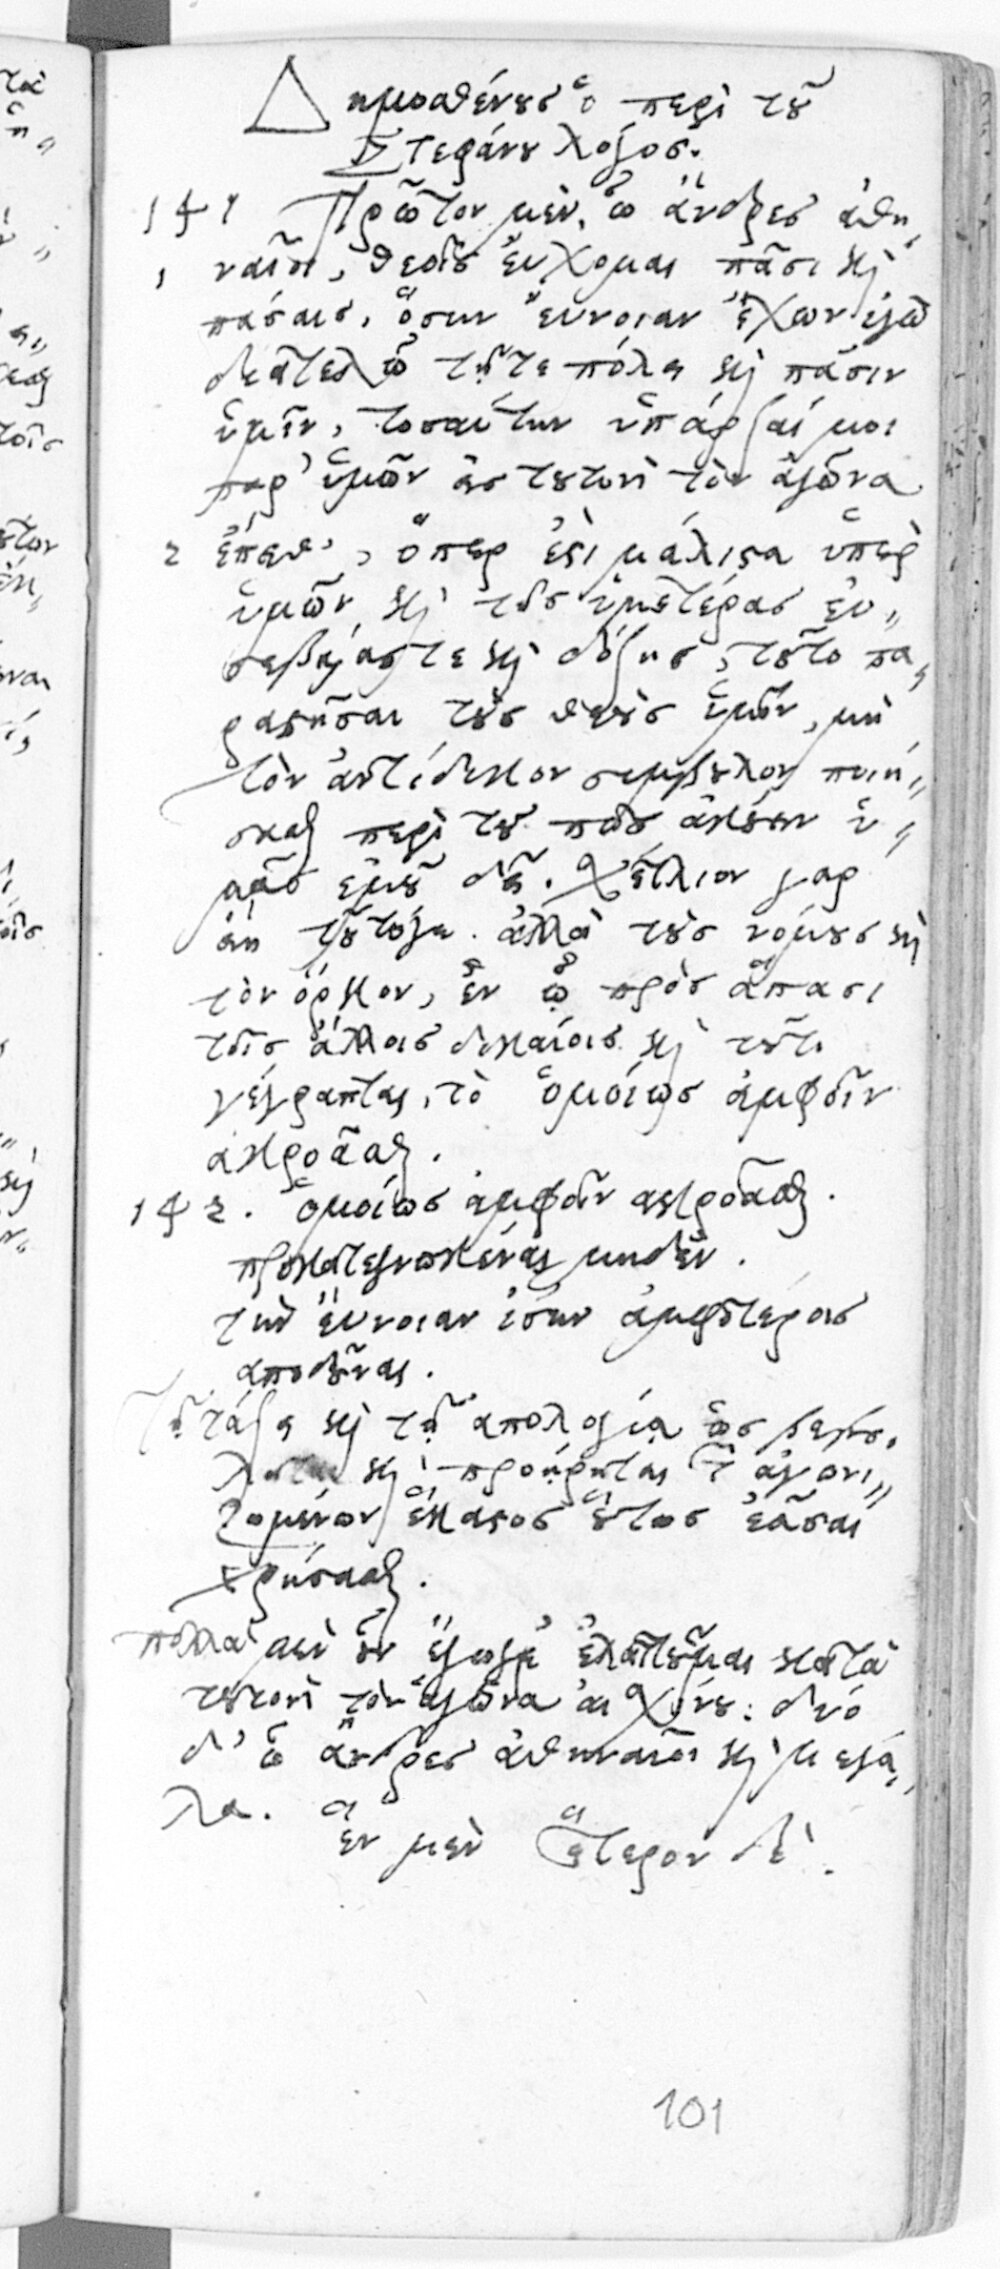 Δημοσθένους ὁ περὶ τοῦ
Στεφάνου λόγος.
141 Πρῶτον μὲν, ὦ ἄνδρες ἀθη
1 ναῖοι, θεοῖς εὔχομαι πᾶσι καὶ
πάσαις, ὅσην εὔνοιαν ἔχων ἐγὼ
διατελῶ τῇ τε πόλει καὶ πᾶσιν
ὑμῖν, τοσαύτην ὑπάρξαί μοι
παρ' ὑμῶν εἰς τουτονὶ τὸν ἀγῶνα
2 ἔπειθ', ὅπερ ἐστὶ μάλιστα ὑπὲρ
ὑμῶν καὶ τῆς ὑμετέρας εὐ„
σεβείας τε καὶ δόξης, τοῦτο πα„
ραστῆσαι τοὺς θεοὺς ὑμῖν, μὴ
τὸν ἀντίδικον σύμβουλον ποιή„
σασθαι περὶ τοῦ πῶς ἀκούειν ὑ„
μᾶς ἐμοῦ δεῖ. σχέτλιον γαρ
ἂν εἴη τοῦτό γε. ἀλλὰ τοὺς νόμους καὶ
τὸν ὅρκον, ἐν ᾧ πρὸς ἅπασι
τοῖς ἄλλοις δικαίοις καὶ τοῦτο
γέγραπται, τὸ ὁμοίως ἀμφοῖν
ἀκροᾶσθαι.
142. ὁμοίως ἀμφοῖν ακροᾶσθαι.
προκατεγνωκέναι μηδέν.
τὴν εὔνοιαν ἴσην ἀμφοτέροις
αποδοῦναι.
Τῇ τάξει καὶ τῇ ἀπολογίᾳ ὡς βεβού„
ληται καὶ προῄρηται τῶν ἀγωνι„
ζομένων ἕκαστος οὕτως ἐᾶσαι
χρήσασθαι.
πολλὰ μὲν οὖν ἔγωγε ἐλαττοῦμαι κατὰ
τουτονὶ τὸν ἀγῶνα αισχίνου: δύο
δ' ὦ ἄνδρες ἀθηναῖοι καὶ μεγά„
λα.
ἓν μὲν ἕτερον δὲ.
101